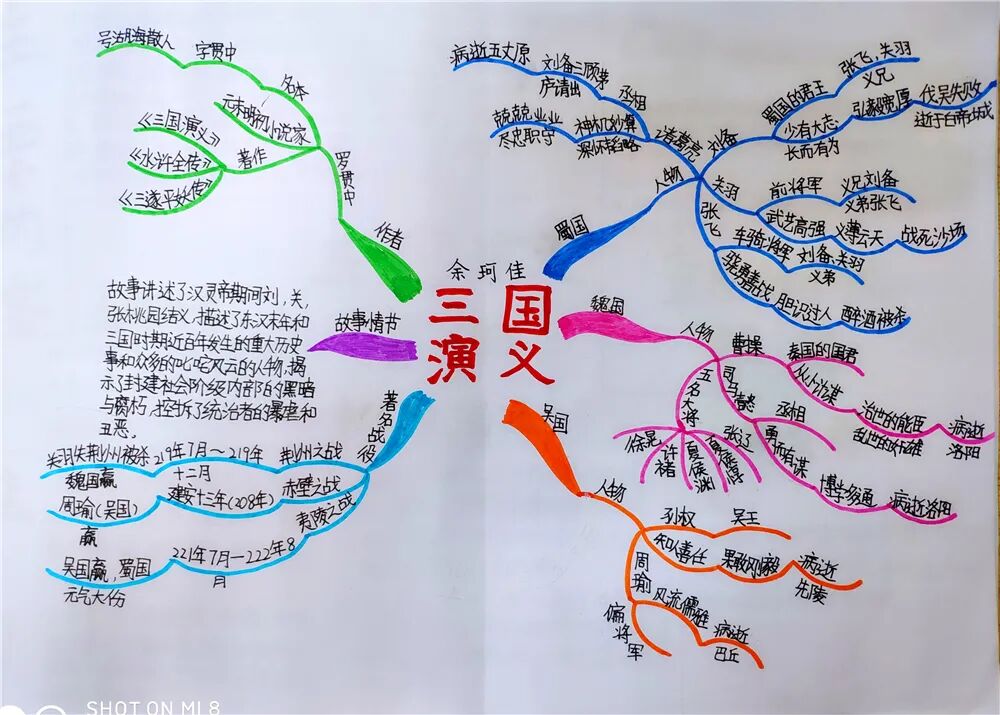 余珂佳
三国
演义
作者
罗贯中
名本
字贯中
号湖海散人
元末明初小说家
著作
《三国演义》
《水浒全传》
《三遂平妖传》
故事情节
故事讲述了汉灵帝期间刘,关,
张桃园结义,描述了东汉末年和
三国时期近百年发生的重大历史
事和众多的叱咤风云的人物,揭
示了封建社会阶级内部的黑暗
与腐朽,控诉了统治者的暴虐和
丑恶.
著名战役
荆州之战
219年7月~219年
十二月
关羽失荆州被杀
魏国赢
赤壁之战
建安十三年(208年)
周瑜(吴国)
赢
夷陵之战
221年7月—222年8
月
吴国赢,蜀国
元气大份
蜀国
人物
诸葛亮
丞相
刘备三顾茅
庐请出
病逝五丈原
神机妙算
深怀韬略
兢兢业业
尽忠职守
刘备
蜀国的君王
张飞,关羽
义兄
少有大志
长而有为
弘毅宽厚
代吴失败
逝于白帝城
关羽
前将军
义兄刘备
义弟张飞
武艺高强
义薄云天
战死沙场
张飞
车骑将军
刘备关羽
义弟
骁勇善战
胆识过人
醉酒被杀
魏国
人物
曹操
秦国的国君
治世的能臣
乱世的奸雄
病逝
洛阳
司马懿
丞相
勇而有谋
博学多通
病逝洛阳
五名大将
徐晃
许褚
夏侯渊
夏侯惇
张辽
吴国
人物
孙权
吴王
知人善任
果敢刚毅
病逝
先陵
周瑜
风流儒雅
病逝
巴丘
偏将军
SHOT ON MI 8